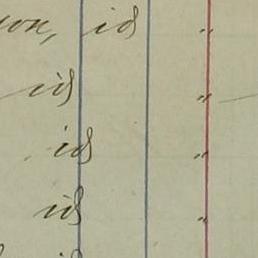 id "
id "
id "
id "
id